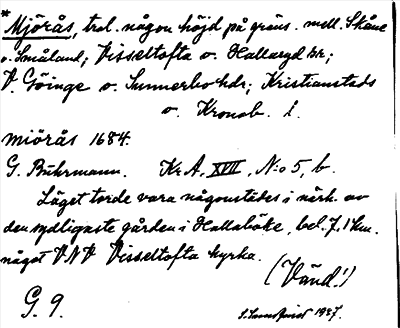 * Mjörås, trol. någon höjd på gräns. mell. Skåne
o. Småland; Visseltofta o. Hallaryd skr;
V. Göinge o. Sunnerbo hdr; Kristianstads
o. Kronob. l.
miörås 1684.
G. Buhrmann. Kr A, XVII, N:o 5, b.
Läget torde vara någonstädes i närh. av
den sydligaste gården i Hallaböke, bel. 7,1 km.
något V.N.V. Visseltofta kyrka.
(Vänd!)
G. 9. 1937.